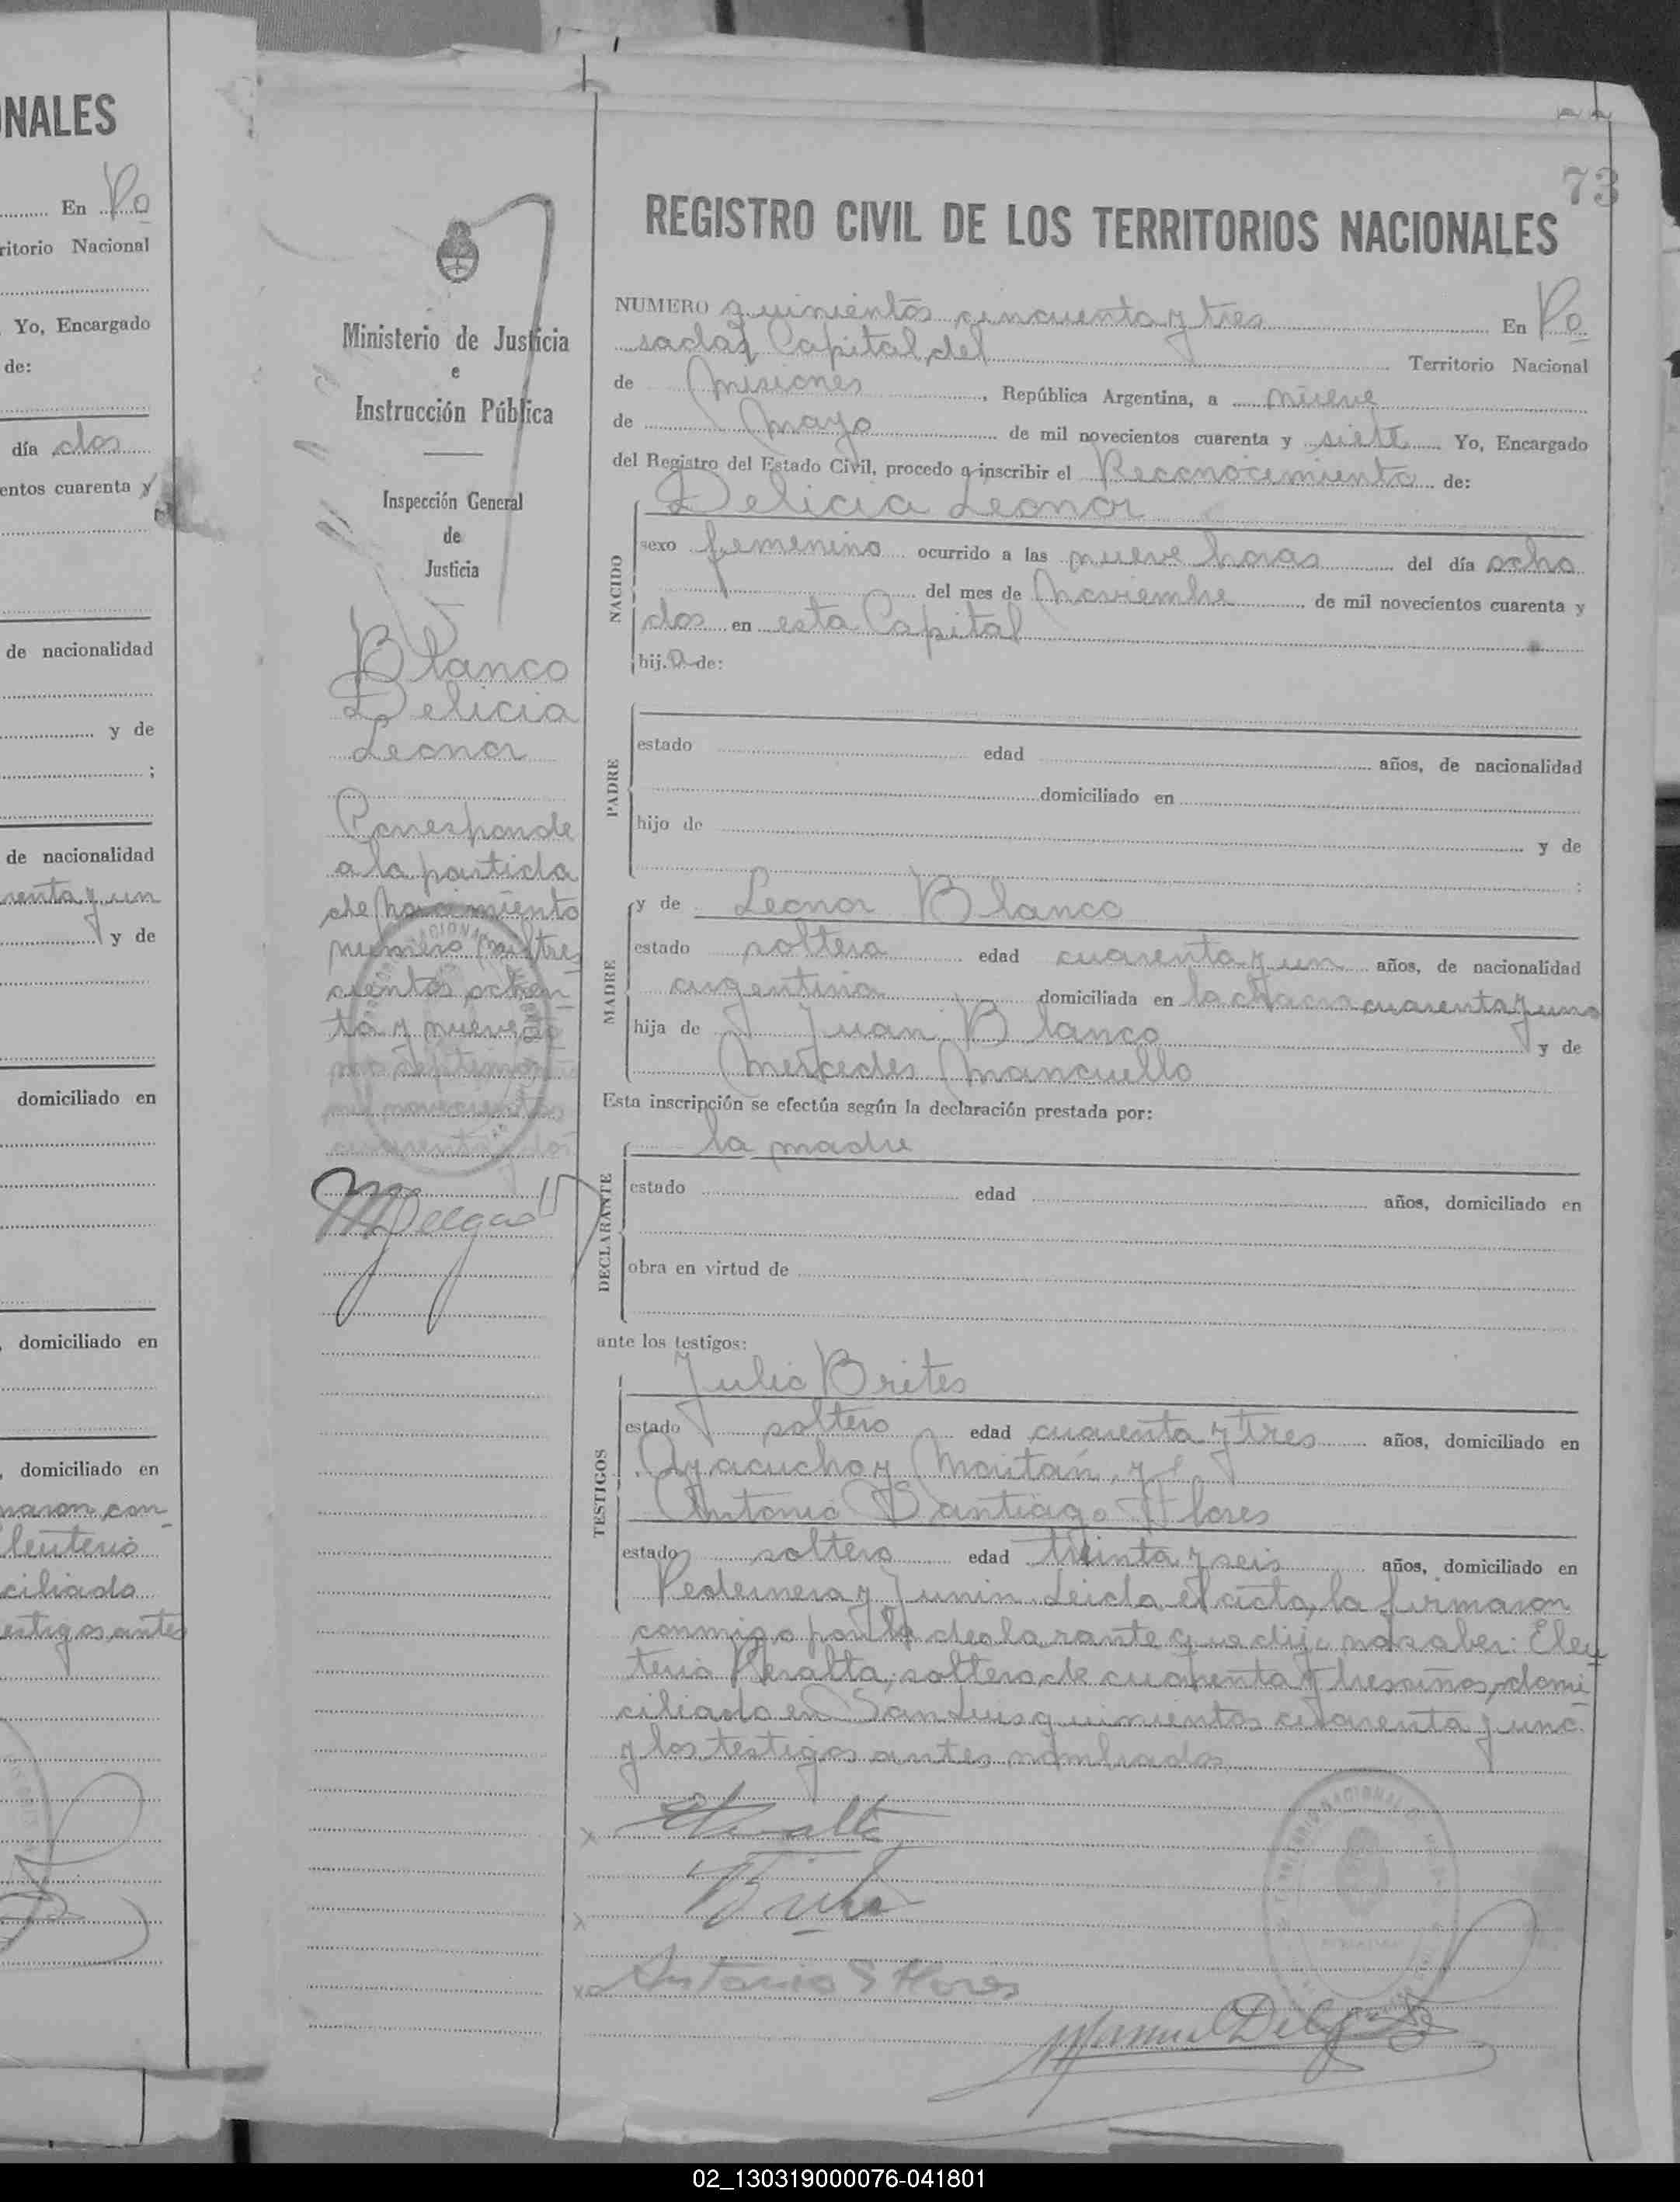 NALES
En Po
ritorio Nacional
Yo, Encargado
de:
día dos
entos cuarenta y
de nacionalidad
y de
;
de nacionalidad
renta y un
y de
domiciliado en
domiciliado en
domiciliado en
maron con-
leuterio
ciliado
estigos antes
73
REGISTRO CIVIL DE LOS TERRITORIOS NACIONALES
Ministerio de Justicia
e
Instrucción Pública
Inspección General
de
Justicia
Blanco
Delicia
Leonor
Corresponde
a la partida
de nacimiento
numero mil tres
cientos ochen-
ta y nueve
mil novecientos
cuarenta y dos
NUMERO quinientos cincuenta y tres En Po
sadas Capital del Territorio Nacional
de Misiones, República Argentina, a nueve
de Mayo de mil novecientos cuarenta y siete Yo, Encargado
del Registro del Estado Civil, procedo a inscribir el Reconocimiento de:
Delicia Leonor
NACIDO
sexo femenino ocurrido a las nueve horas del día ocho
del mes de Noviembre de mil novecientos cuarenta y
dos en esta Capital
hij.a de:
PADRE
estado edad años, de nacionalidad
domiciliado en
hijo de y de
;
y de Leonor Blanco
MADRE
estado soltera edad cuarenta y un años, de nacionalidad
argentina domiciliada en la chacra cuarenta y uno
hija de Juan Blanco y de
Mercedes Mancuello
Esta inscripción se efectúa según la declaración prestada por:
la madre
DECLARANTE
estado edad años, domiciliado en
obra en virtud de
ante los testigos:
Julio Brites
TESTIGOS
estado soltero edad cuarenta y tres años, domiciliado en
Ayacucho y Moritán, y
Antonio Santiago Flores
estado soltero edad treinta y seis años, domiciliado en
Pedernera y Junin. Leida el acta, la firmaron
conmigo por la declarante que dijo no saber: Eleu
terio Peralta, soltero, de cuarenta y tres años, domi
ciliado en San Luis quinientos cuarenta y uno
y los testigos antes nombrados
Antonio S Flores
Manuel Delgado
02_130319000076-041801